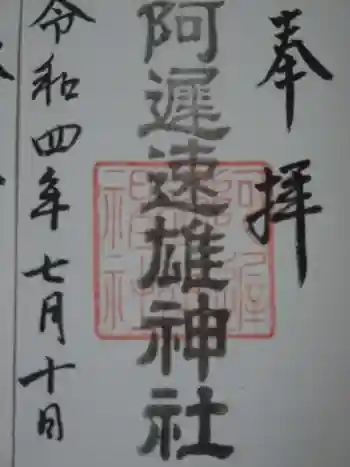 奉拝
阿遅速雄神社
令和四年七月十日